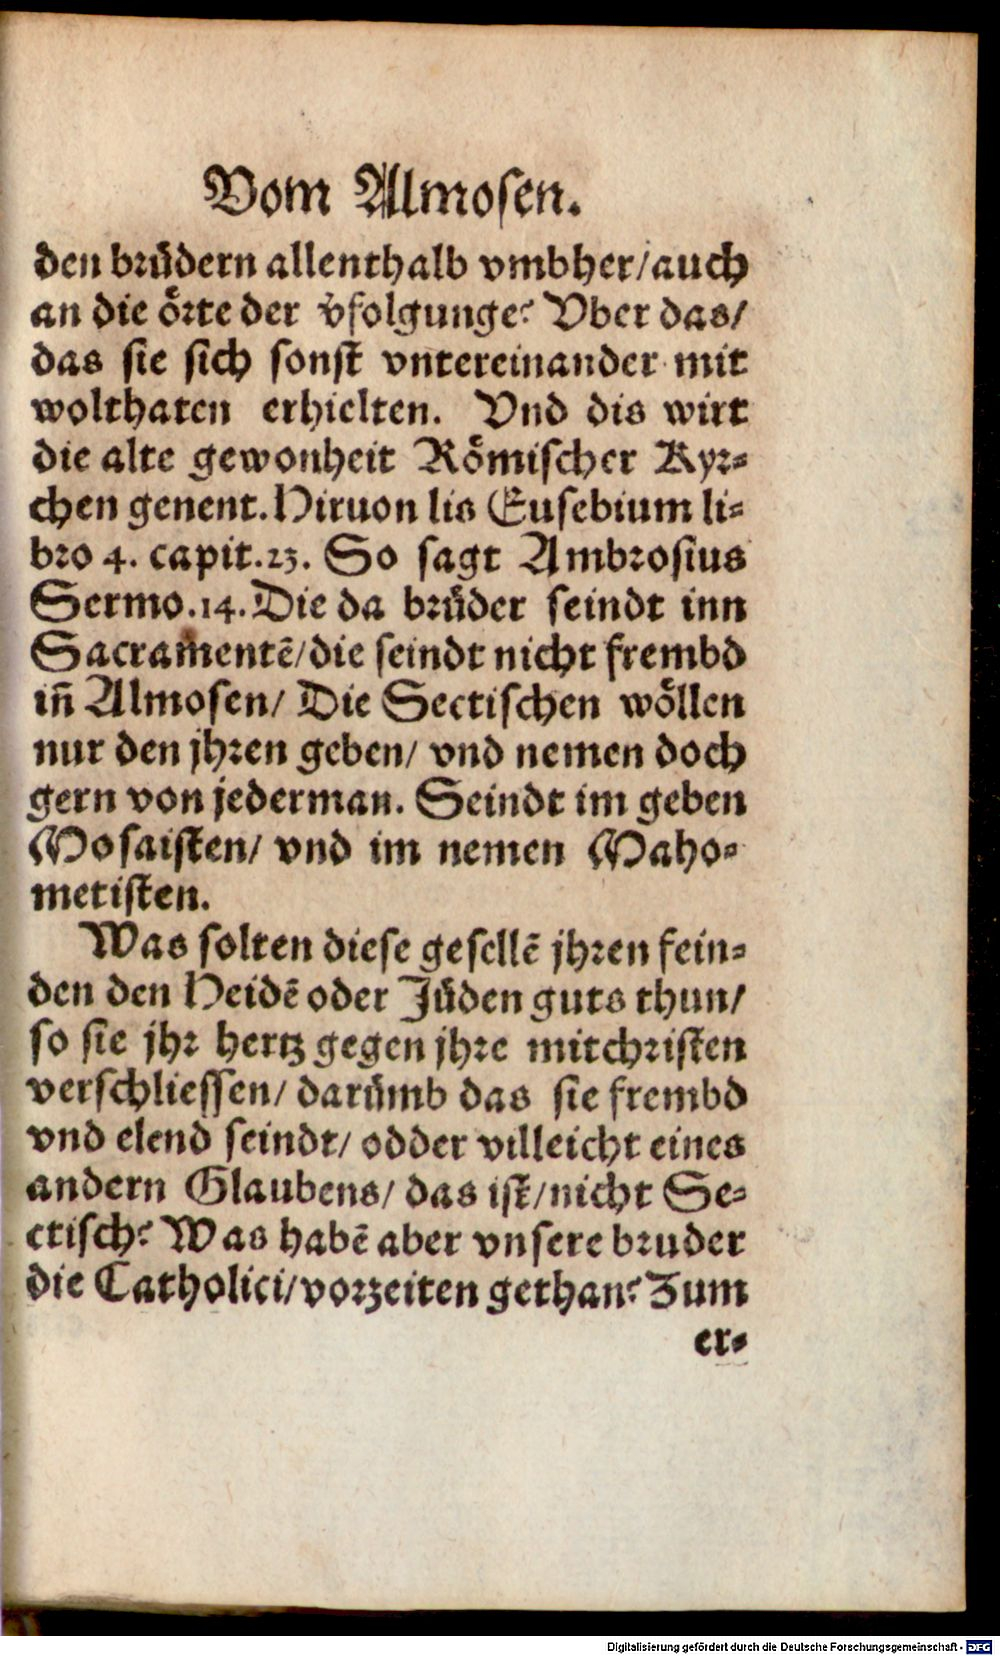 Vom Almosen.
den brüdern allenthalb vmbher/auch
an die örte der v̄folgunge? Vber das/
das sie sich sonst vntereinander mit
wolthaten erhielten. Vnd dis wirt
die alte gewonheit Römischer Kyr-
chen genent. Hiruon lis Eusebium li-
bro 4. capit. 23. So sagt Ambrosius
Sermo. 14. Die da brüder seindt inn
Sacramentē/die seindt nicht frembd
in̄ Almosen/ Die Sectischen wöllen
nur den jhren geben/ vnd nemen doch
gern von jederman. Seindt im geben
Mosaisten/ vnd im nemen Maho-
metisten.
Was solten diese gesellē jhren fein-
den den Heidē oder Jüden guts thun/
so sie jhr hertz gegen jhre mitchristen
verschliessen/ darümb das sie frembd
vnd elend seindt/ odder villeicht eines
andern Glaubens/ das ist/nicht Se-
ctisch? Was habē aber vnsere bruder
die Catholici/vorzeiten gethan? Zum
er-
Digitalisierung gefördert durch die Deutsche Forschungsgemeinschaft - DFG